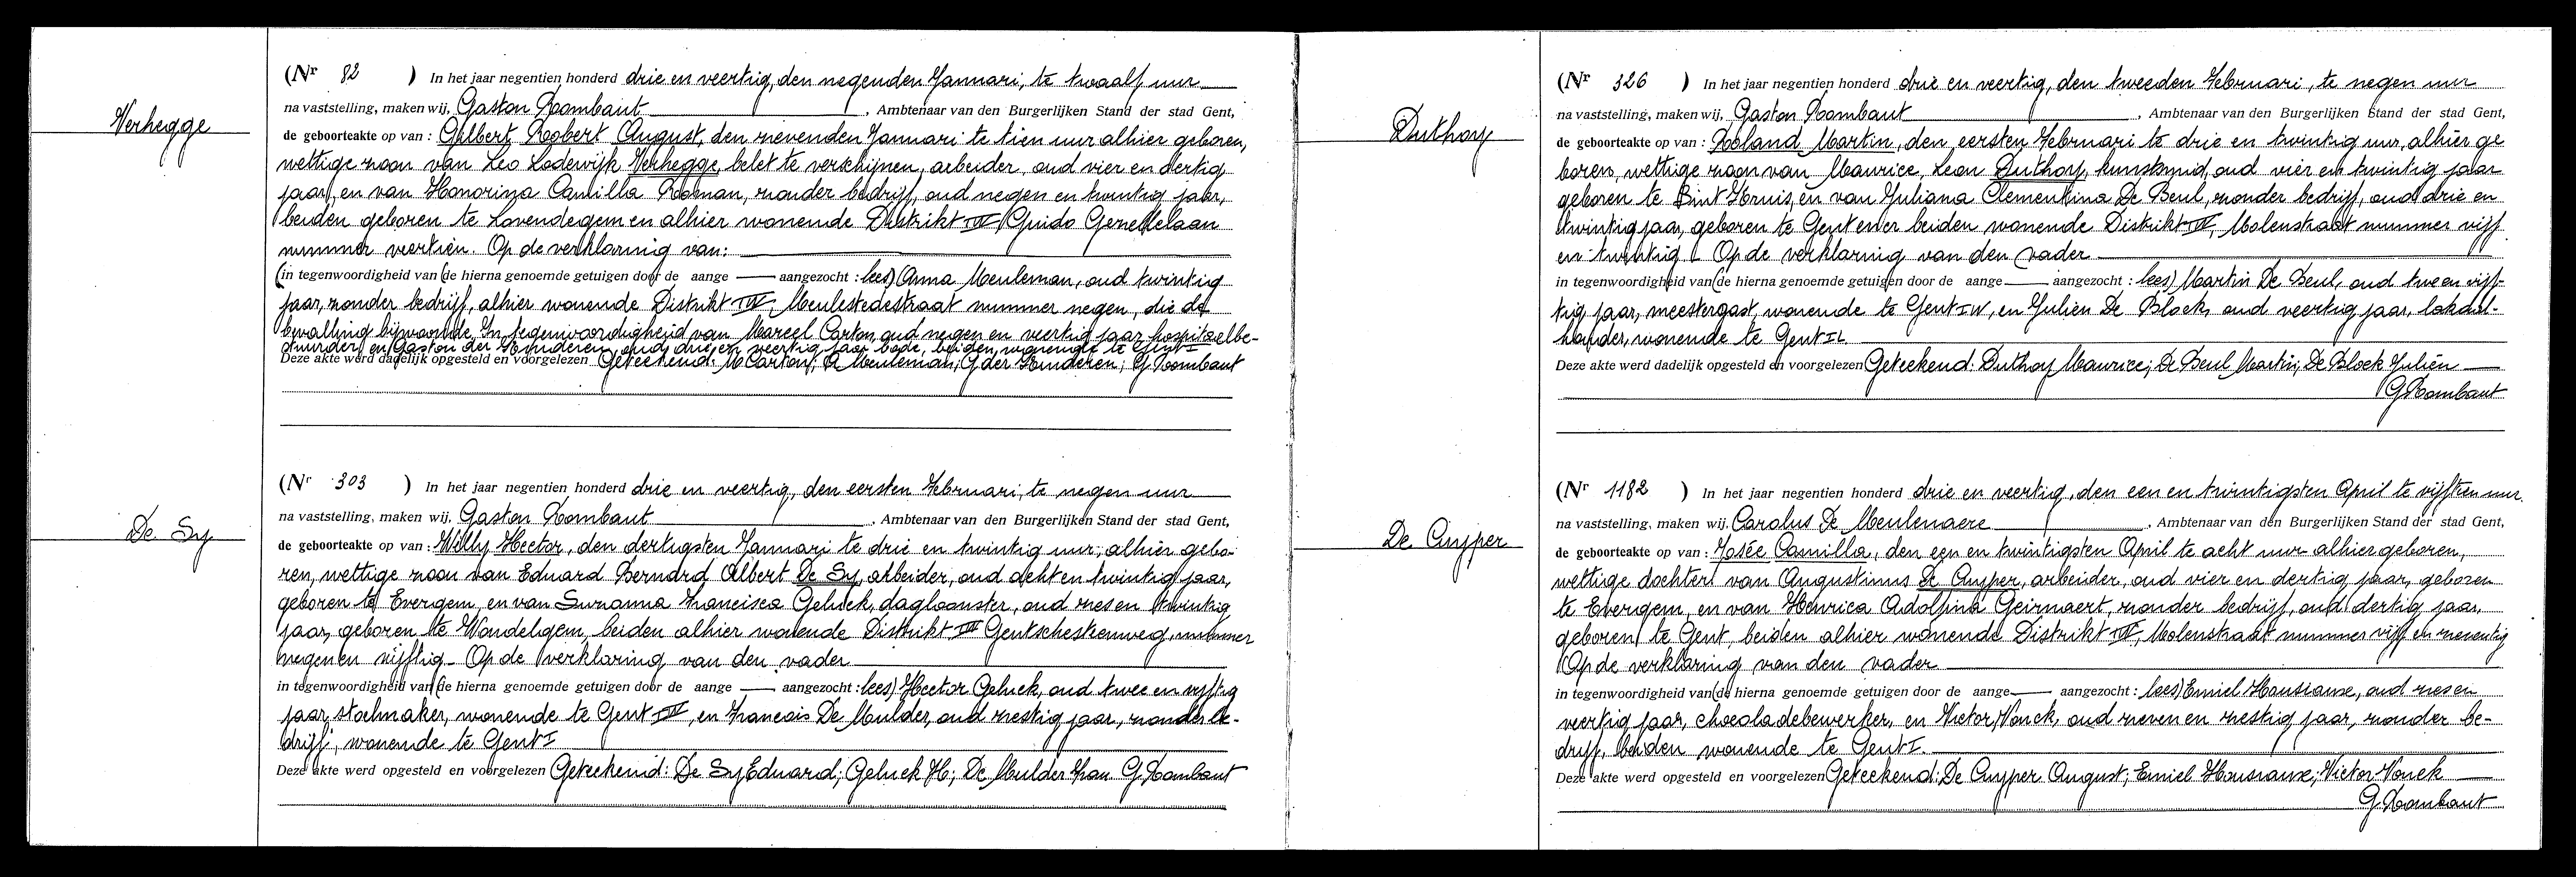 Verhegge
(Nr 82 ) In het jaar negentien honderd drie en veertig, den negenden Januari, te twaalf uur
na vaststelling, maken wij, Gaston Rombaut, Ambtenaar van den Burgerlijken Stand der stad Gent,
de geboorteakte op van : Gilbert Robert August, den zevenden Januari te tien uur alhier geboren,
wettige zoon van Leo Lodewijk Verhegge, belet te verschijnen, arbeider, oud vier en dertig
jaar, en van Honorina Camilla Rooman, zonder bedrijf, oud negen en twintig jaar,
beiden geboren te Lovendegem en alhier wonende Distrikt IV Guido Gezellelaan
nummer veertien. Op de verklaring van:
(in tegenwoordigheid van de hierna genoemde getuigen door de aange aangezocht : lees) Anna Meuleman, oud twintig
jaar, zonder bedrijf, alhier wonende Distrikt IV, Meulestedestraat nummer negen, die de
bevalling bijwoonde. In tegenwoordigheid van Marcel Carton, oud negen en veertig jaar, hospitaalbe-
stuurder, en Gaston der Kinderen, oud drie en veertig jaar, bode, beiden wonende te Gent I
Deze akte werd dadelijk opgesteld en voorgelezen Geteekend: M Carton; A Meuleman; G der Kinderen; G. Rombaut
De Sy
(Nr 303 ) In het jaar negentien honderd drie en veertig, den eersten Februari, te negen uur
na vaststelling, maken wij, Gaston Rombaut, Ambtenaar van den Burgerlijken Stand der stad Gent,
de geboorteakte op van : Willy Hector, den dertigsten Januari te drie en twintig uur, alhier gebo-
ren, wettige zoon van Eduard Bernard Albert De Sy, arbeider, oud acht en twintig jaar,
geboren te Evergem, en van Suzanna Francisca Geluck, dagloonster, oud zes en twintig
jaar, geboren te Wondelgem, beiden alhier wonende Distrikt III Gentschesteenweg, nummer
negen en vijftig. Op de verklaring van den vader
in tegenwoordigheid van (de hierna genoemde getuigen door de aange aangezocht : lees) Hector Geluck, oud twee en vijftig
jaar, stoelmaker, wonende te Gent III, en Francois De Mulder, oud zestig jaar, zonder be-
drijf, wonende te Gent I
Deze akte werd opgesteld en voorgelezen Geteekend: De Sy Eduard; Geluck H; De Mulder Fran. G. Rombaut
Duthoy
(Nr 326 ) In het jaar negentien honderd drie en veertig, den tweeden Februari, te negen uur
na vaststelling, maken wij, Gaston Rombaut, Ambtenaar van den Burgerlijken Stand der stad Gent,
de geboorteakte op van : Roland Martin, den eersten Februari te drie en twintig uur, alhier ge
boren, wettige zoon van Maurice, Leon Duthoy, kunstsmid, oud vier en twintig jaar
geboren te Sint Kruis, en van Juliana Clementina De Beul, zonder bedrijf, oud drie en
twintig jaar, geboren te Gent en er beiden wonende Distrikt IV, Molenstraat nummer vijf
en twintig. Op de verklaring van den vader
in tegenwoordigheid van (de hierna genoemde getuigen door de aange aangezocht : lees) Martin De Beul, oud twee en vijf-
tig jaar, meestergast, wonende te Gent IV, en Julien De Block, oud veertig jaar, lokaal-
houder, wonende te Gent II
Deze akte werd dadelijk opgesteld en voorgelezen Geteekend: Duthoy Maurice; De Beul Martin; De Block Julien
G Rombaut
De Cuyper
(Nr 1182 ) In het jaar negentien honderd drie en veertig, den een en twintigsten April te vijftien uur.
na vaststelling, maken wij, Carolus De Meulenaere, Ambtenaar van den Burgerlijken Stand der stad Gent,
de geboorteakte op van : Josée Camilla, den een en twintigsten April te acht uur alhier geboren,
wettige dochter van Augustinus De Cuyper, arbeider, oud vier en dertig jaar, geboren
te Evergem, en van Henrica Adolfina Geirnaert, zonder bedrijf, oud dertig jaar,
geboren te Gent, beiden alhier wonende Distrikt IV, Molenstraat nummer vijf en zeventig
Op de verklaring van den vader
in tegenwoordigheid van (de hierna genoemde getuigen door de aange aangezocht : lees) Emiel Housiaux, oud zes en
veertig jaar, chocoladebewerker, en Victor Vonck, oud zeven en zestig jaar, zonder be-
drijf, beiden wonende te Gent I.
Deze akte werd opgesteld en voorgelezen Geteekend: De Cuyper August; Emiel Housiaux; Victor Vonck
G. Rombaut